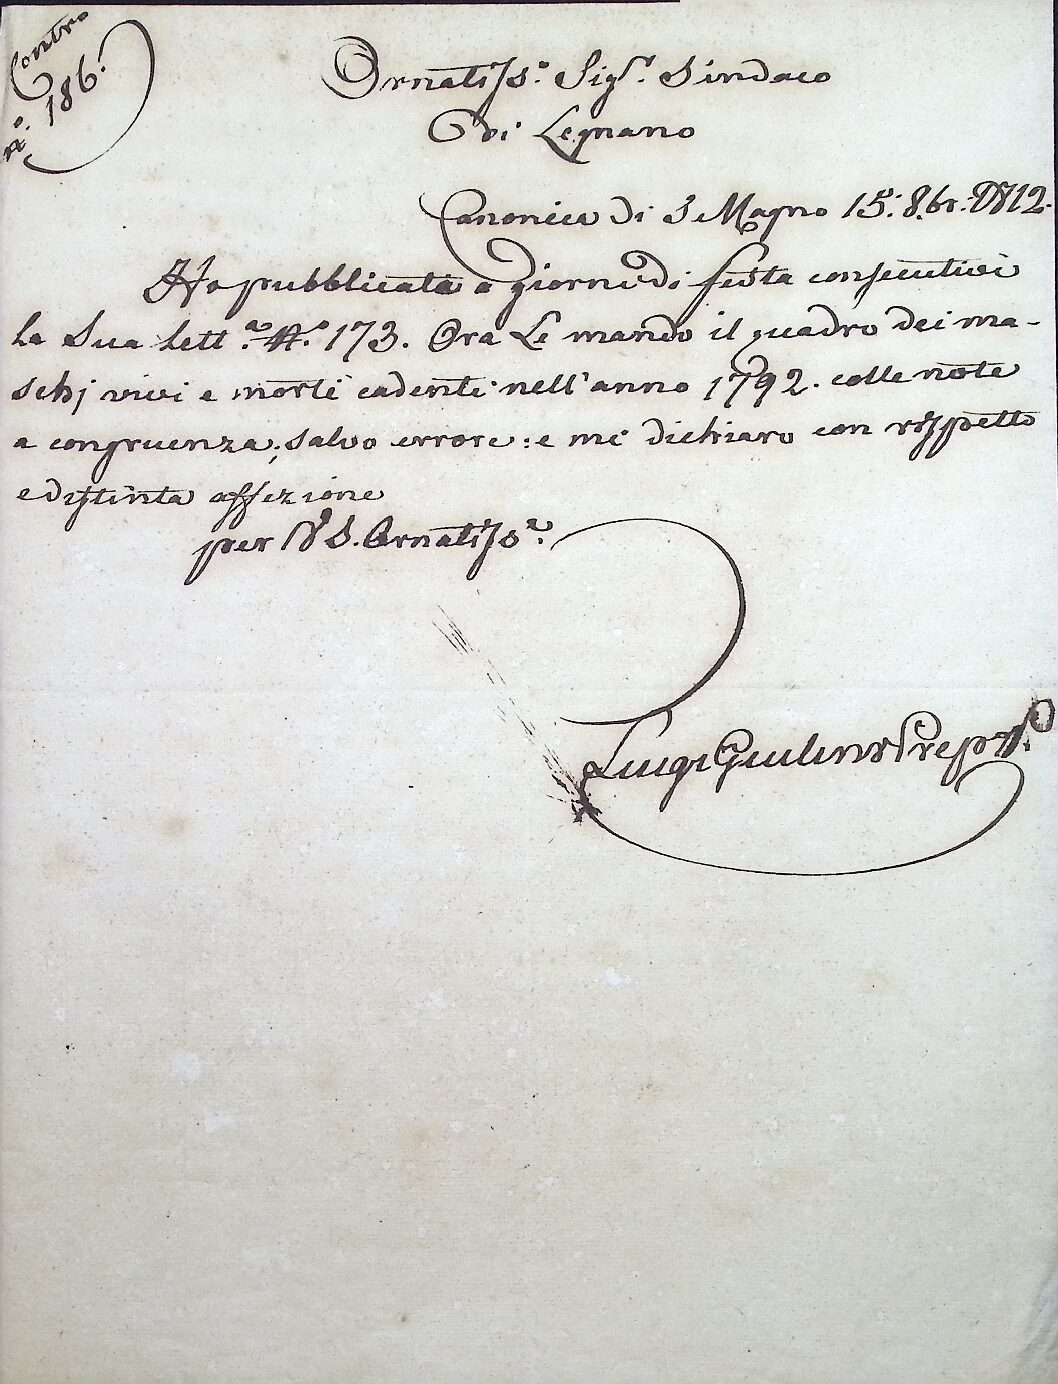 Contro
N.° 186.
Ornatiss.° Sig.r Sindaco
di Legnano
Canonica di S Magno 15. 8.br. 1812.
Ho pubblicata a giorni di festa consecutivi
la Sua Lett.a N.° 173. Ora Le mando il quadro dei ma-
schj vivi e morti cadenti nell'anno 1792. colle note
a congruenza; salvo errore: e mi dichiaro con rispetto
e distinta affezione
per V S. Ornatiss.a
Luigi Giulini Prep.